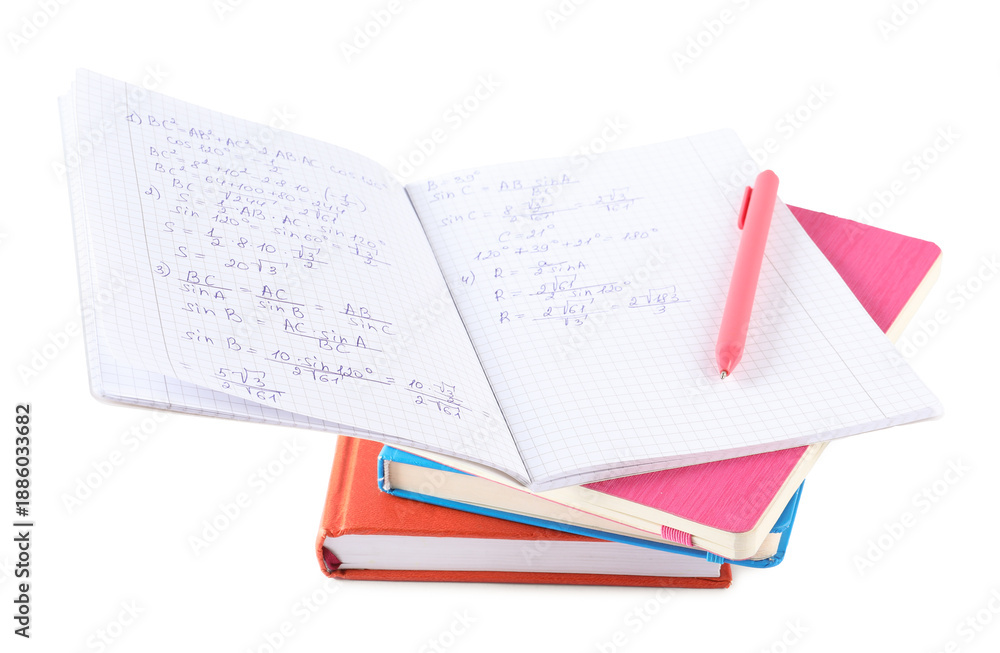 1) BC² = AB² + AC² - 2 AB·AC cos 120°
cos 120° = - 1/2
BC² = 8² + 10² - 2·8·10 (- 1/2)
BC² = 64 + 100 + 80 = 244
BC = √244 = 2√61
2) S = 1/2 · AB · AC · sin 120°
sin 120° = sin 60° = √3/2
S = 1/2 · 8 · 10 · √3/2
S = 20√3
3) BC/sin A = AC/sin B = AB/sin C
sin B = AC · sin A / BC
sin B = 10 · sin 120° / 2√61 = 10 · √3/2 / 2√61 =
5√3 / 2√61
B = 39°
sin C = AB sin A / BC
sin C = 8 √3/2 / 2√61 = 2√3/√61
C = 21°
120° + 39° + 21° = 180°
4) R = a / 2 sin A
R = 2√61 / 2 sin 120°
R = 2√61 / √3 = 2√183 / 3
Adobe Stock | #1886033682